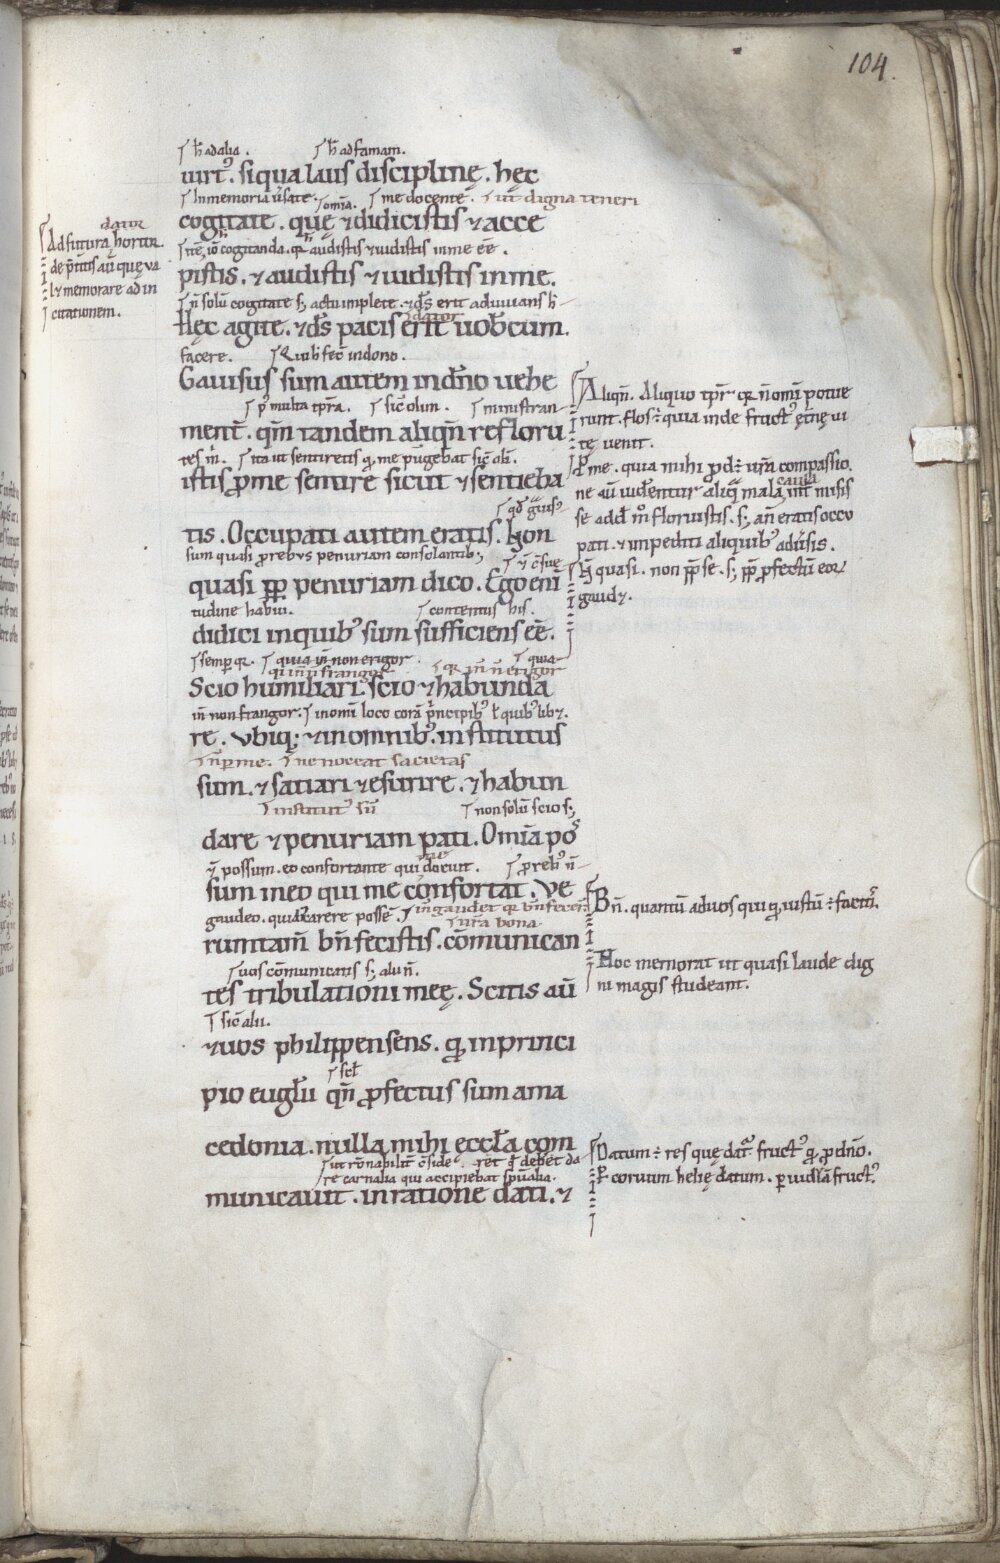 104.
⌈ħ ad alia. ⌈ħ ad famam.
uirt᷒. siqua laus disciplinę. hęc
⌈In memoria ⌈omīa. ⌈me docente. ⌈ut digna teneri
cogitate. quę ⁊ didicistis ⁊ acce
cogitanda. audistis ⁊ uidistis in me ēē.
pistis. ⁊ audistis ⁊ uidistis in me.
⌈n̄ solū cogitate s; actu implete. ⁊ d̄s erit adiuuans
⌈dator
Hęc agite. ⁊ d̄s pacis erit uob̄cum.
facere. ⌈Quib᷒ fec̄ in dono.
Gauisus sum autem in dn̄o uehe
⌈p᷒ multa tp̄ra. ⌈sic̄ olim. ⌈ministran
ment̄. qm̄ tandem aliqn̄ refloru
tes m̄. ⌈ita ut sentiretis ꝙ me pūgebat sic̄ oli̅.
istis ꝓ me sentire sicut ⁊ sentieba
tis. Occupati autem eratis. Non
sum quasi ꝓ reb᷒ penuriam consolantib;
quasi ꝓp̄ penuriam dico. Ego eni̅
tudine habui. ⌈contentus his.
didici in quib᷒ sum sufficiens ēē.
⌈semp̄ ⌈quia in̄ non erigor. ⌈quia
qi in̄ n̄ frangor ⌈qr in̄ n̄ erigor
Scio humiliari. scio ⁊ habunda
in̄ non frangor. ⌈in omni loco corā p̄ncipib᷒ ł quib᷒ lib⁊.
re. Vbiq; ⁊ in omnib᷒ institutus
⌈ne noceat sacietas
sum. ⁊ satiari ⁊ esurire. ⁊ habun
⌈institut᷒ sū ⌈non solū scio s;
dare ⁊ penuriam pati. Omīa pos
possum. eo confortante qui me docuit. ⌈ꝓ reb᷒ n̄
sum in eo qui me confortat. Ve
gaudeo. quib᷒ carere possē. ⌈in̄ gaudet qr bn̄ fecer̄
⌈ur̄a bona
rumtam̄ bn̄ fecistis. cōmunican
⌈uos cōmunicatis s; alii n̄.
tes tribulationi meę. Scitis aū
⌈sic̄ alii.
⁊ uos philippenses. ꝙ in princi
⌈scł
pio euglīi qn̄ ꝓfectus sum a ma
cedonia. nulla mihi eccłia com
⌈ut rōnabilit̄ ret q̄ debet da
re carnalia qui accipiebat spūalia.
municauit. in ratione dati. ⁊
dator
⌈Ad futura hortor.
de p̄teritis aū quę ua
l⁊ memorare ad in
citationem.
⌈Aliqn̄. Aliquo tp̄r qr n̄ omi̅ potue
runt. flos ÷ quia inde fruct᷒ ęt̄nę ui
tę uenit.
Pme. quia mihi ꝓd÷ ur̄a compassio.
ne aū uidentur aliq̄ mala causa int̄ misis
se add̄ m̊ floruistis. s; an̄ eratis occu
pati. ⁊ impediti aliquib᷒ adūsis.
⌈N̄ quasi. non ꝓp̄ se. s; ꝓp̄ ꝓfectū eoꝝ
gaud⁊.
⌈Bn̄. quantū ad uos qui ꝙ iustū ÷ facit̄.
Hoc memorat ut quasi laude dig
ni magis studeant.
⌈Datum ÷ res quę dat᷑. fruct᷒ ꝙ ꝓ dn̄o.
coruum helię datum. per uiduā fruct᷒.